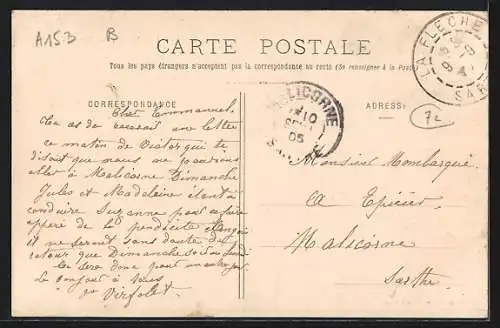 A153
B
CARTE POSTALE
Tous les pays étrangers n'acceptent pas la correspondance au recto (Se renseigner à la Poste)
LA FLECHE
SAR
MALICORNE
10
05
72
CORRESPONDANCE
ADRESSE:
Cher Emmanuel
Tu as du recevoir une lettre
ce matin de Victor qui te
disait que nous ne pouvons
aller à Malicorne Dimanche
Jules et Madeleine étant à
conduire Suzanne pour
de la
il ne serait sans doute de
retour que Dimanche
Ce sera donc pour
Le bonjour à tous
Monsieur Mombarqué
Epicier
Malicorne
Sarthe